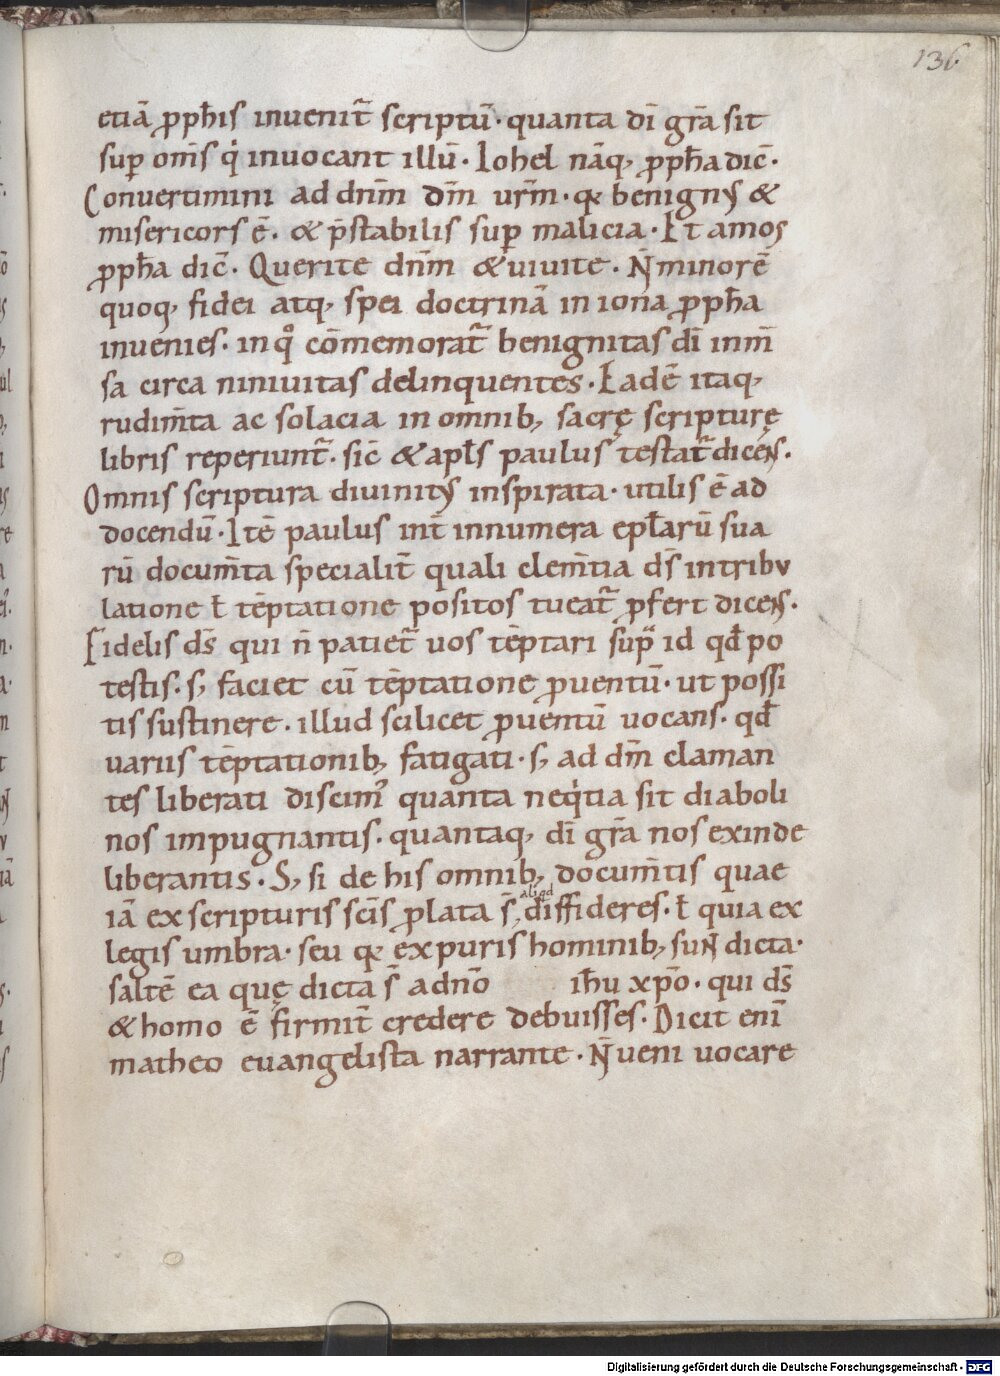 136
etiā ꝓph̄is inuenit̄ scriptū· quanta dī gr̄a sit
sup̄ om̄s q̇ inuocant illū· Iohel nāq, ꝓph̄a dic̄·
Conuertimini ad dn̄m dm̄ ur̄m· qꝛ benignꝰ &
misericors ē· & p̄stabilis sup̄ malicia· Et amos
ꝓph̄a dic̄· Querite dn̄m & uiuite· N̄ minorē
quoq, fidei atq, spei doctrinā in iona ꝓph̄a
inuenies· in qͦ cōmemorat̄ benignitas dī inm̄
sa circa niniuitas delinquentes· Eadē itaq,
rudim̄ta ac solacia in omnib, sacrę scripturę
libris reperiunt̄· sic̄ & apl̄s paulus testat̄ dicēs·
Omnis scriptura diuinitꝰ inspirata· utilis ē ad
docendū· Itē paulus int̄ innumera epl̄arū sua
rū docum̄ta specialit̄ quali clem̄tia ds̄ in tribu
latione ł tēptatione positos tueat̄ ꝓfert dicens·
Fidelis ds̄ qui n̄ patiet̄ uos tēptari sup̄ id qd̄ po
testis· s, faciet cū tēptatione ꝓuentū· ut possi
tis sustinere· illud scilicet ꝓuentū uocans· qd̄
uariis tēptationib, fatigati· s, ad dm̄ claman
tes liberati discimꝰ quanta neq̇tia sit diaboli
nos impugnantis· quantaq, dī gr̄a nos exinde
liberantis· S, si de his omnib, docum̄tis quae
aliqd
iā ex scripturis scīs ꝓlata s̄, diffideres· ł quia ex
legis umbra· seu qꝛ ex puris hominib, sunt dicta·
saltē ea quę dicta s̄ a dn̄o ih̄u xp̄o· qui ds̄
& homo ē firmit̄ credere debuisses· Dicit enī
matheo euangelista narrante· N̄ ueni uocare
Digitalisierung gefördert durch die Deutsche Forschungsgemeinschaft · DFG